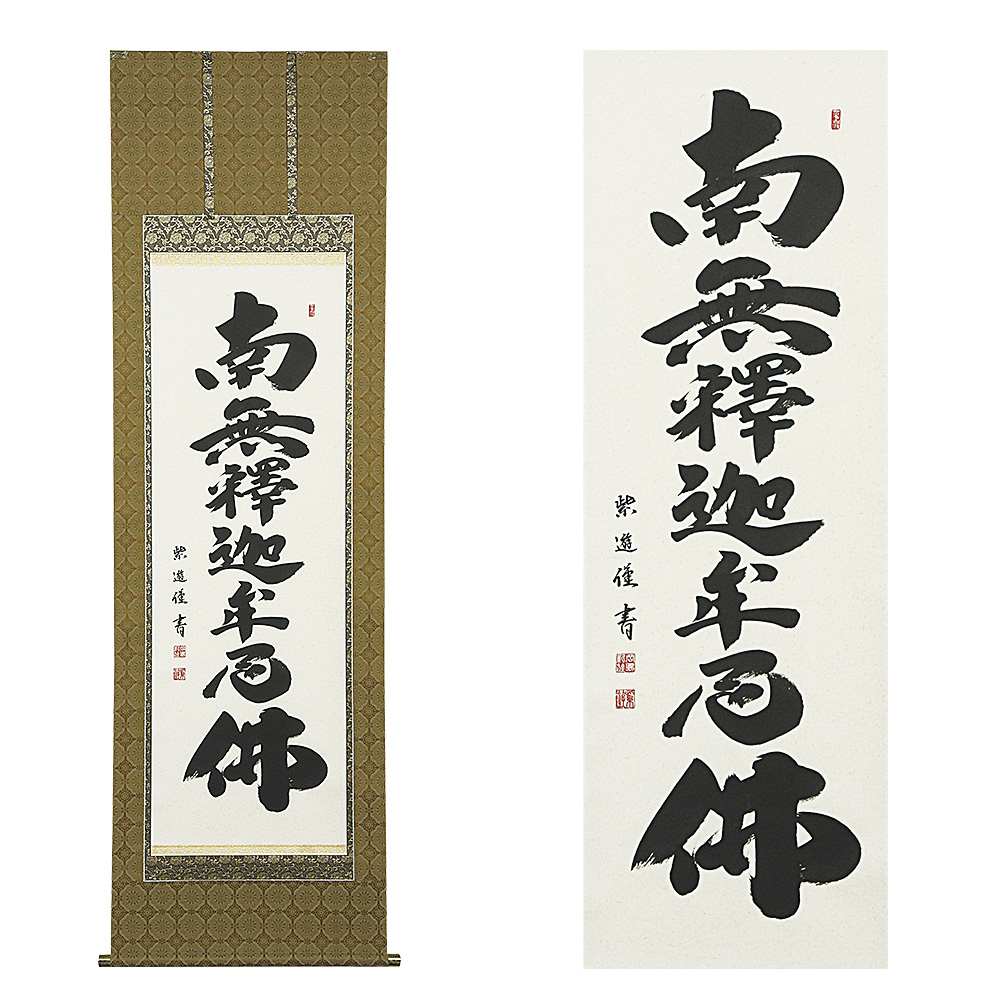 南無釋迦牟尼佛
紫遊僅書
南無釋迦牟尼佛
紫遊僅書